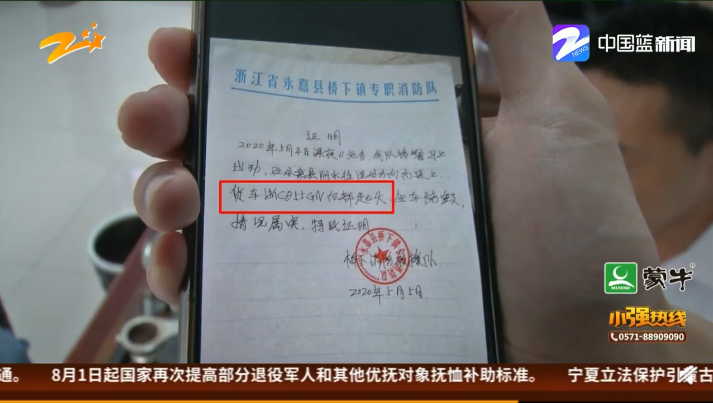 中国蓝新闻
浙江省永嘉县桥下镇专职消防队
证明
2020年5月4日深夜11
出动,
货车浙CB55GN后部起火
情况属实,特此证明
永嘉县桥下镇
2020年5月5日
蒙牛
MENGNIU
小强热线
0571-88909090
通。 8月1日起国家再次提高部分退役军人和其他优抚对象抚恤补助标准。 宁夏立法保护引 古